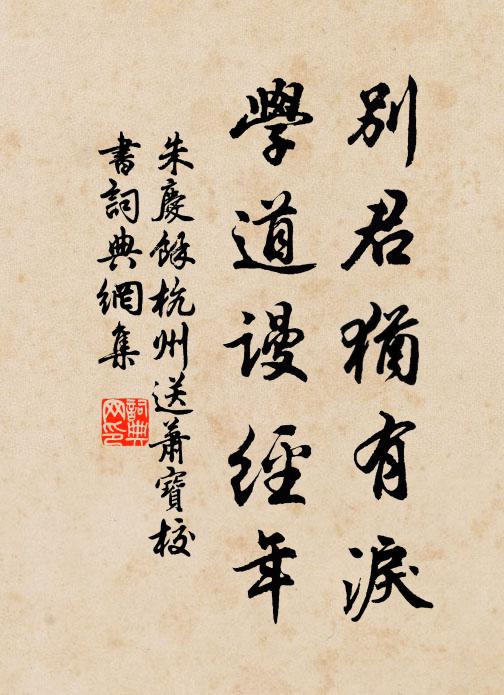 別君猶有淚
學道謾經年
朱慶餘杭州送蕭寶校
書詞典網集
詞典網印